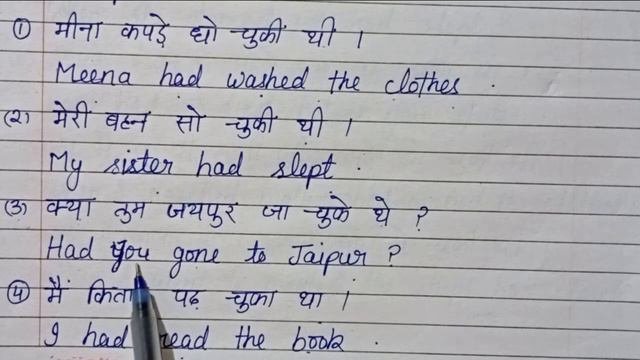 ① मीना कपड़े धो चुकी थी ।
Meena had washed the clothes.
(२) मेरी बहन सो चुकी थी ।
My sister had slept.
(३) क्या तुम जयपुर जा चुके थे ?
Had you gone to Jaipur ?
④ मैं पढ़ चुका था ।
I had the book.